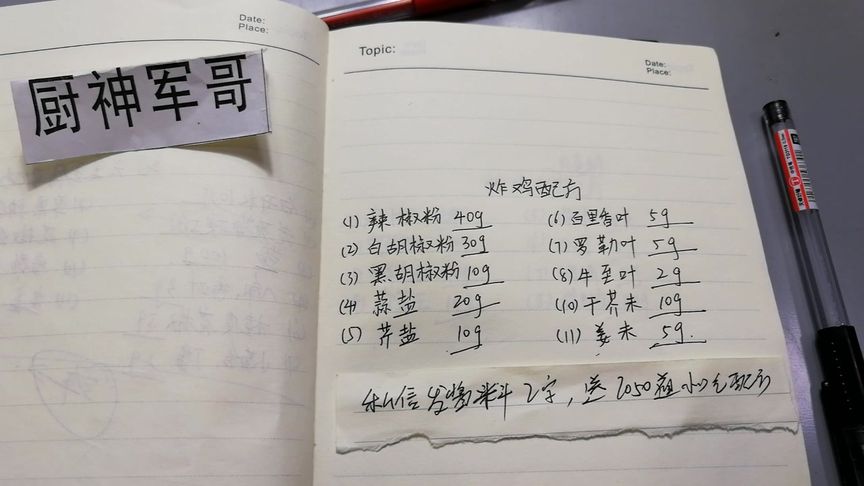 Date:
Place:
厨神军哥
Topic:
Date:
Place:
炸鸡配方
(1) 辣椒粉 40g
(2) 白胡椒粉 30g
(3) 黑胡椒粉 10g
(4) 蒜盐 20g
(5) 芹盐 10g
(6) 百里香叶 5g
(7) 罗勒叶 5g
(8) 牛至叶 2g
(10) 干芥末 10g
(11) 姜末 5g.
私信发酱料2字,送2050道小吃配方